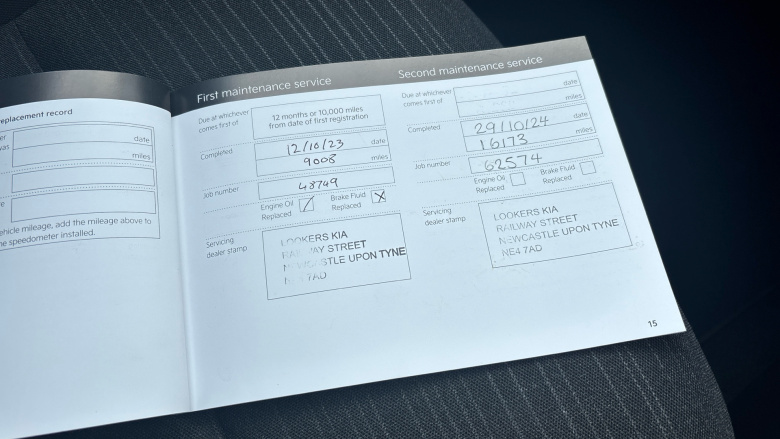 eplacement record
er
vas
date
miles
e
ehicle mileage, add the mileage above to
he speedometer installed.
First maintenance service
Due at whichever
comes first of
12 months or 10,000 miles
from date of first registration
Completed
12/10/23 date
9008 miles
Job number
48749
Engine Oil
Replaced
Brake Fluid
Replaced
Servicing
dealer stamp
LOOKERS KIA
RAILWAY STREET
NEWCASTLE UPON TYNE
NE4 7AD
Second maintenance service
Due at whichever
comes first of
date
miles
Completed
29/10/24 date
16173 miles
Job number
62574
Engine Oil
Replaced
Brake Fluid
Replaced
Servicing
dealer stamp
LOOKERS KIA
RAILWAY STREET
NEWCASTLE UPON TYNE
NE4 7AD
15